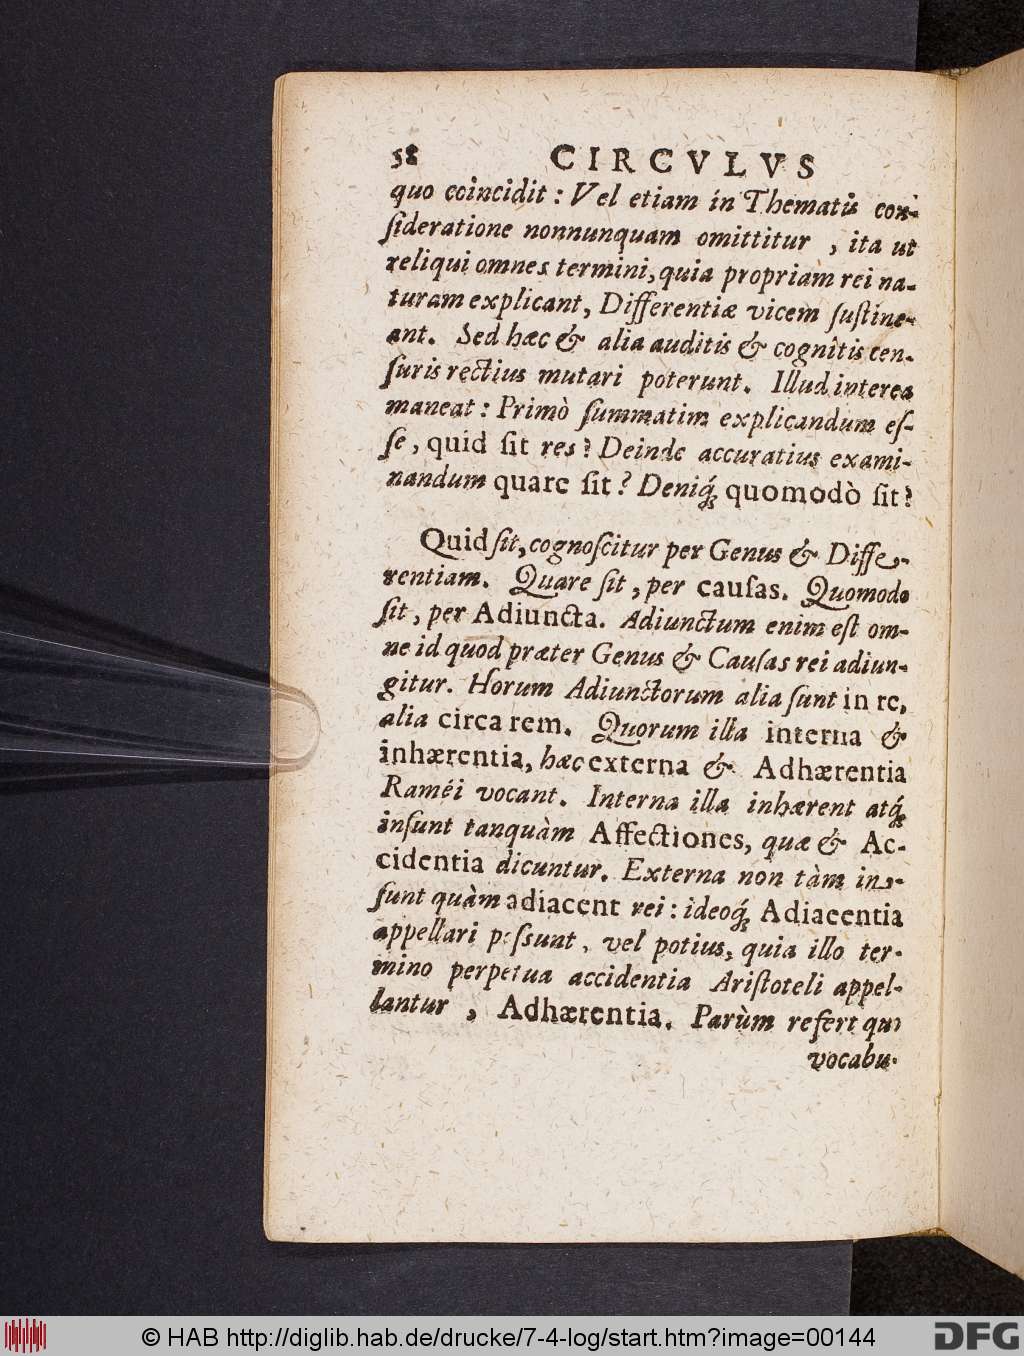 58 CIRCVLVS
quo coincidit : Vel etiam in Thematis con-
ſideratione nonnunquam omittitur , ita ut
reliqui omnes termini, quia propriam rei na-
turam explicant, Differentiæ vicem ſuſtine-
ant. Sed hæc & alia auditis & cognitis cen-
ſuris rectius mutari poterunt. Illud interea
maneat : Primò ſummatim explicandum eſ-
ſe , quid ſit res ? Deinde accuratius exami-
nandum quare ſit ? Deniq́; quomodò ſit ?
Quid ſit, cognoſcitur per Genus & Diffe-
rentiam. Quare ſit , per cauſas. Quomodo
ſit , per Adiuncta. Adiunctum enim eſt om-
ne id quod præter Genus & Cauſas rei adiun-
gitur. Horum Adiunctorum alia ſunt in re,
alia circa rem. Quorum illa interna &
inhærentia, hæc externa & Adhærentia
Raméi vocant. Interna illa inhærent atq́;
inſunt tanquàm Affectiones, quæ & Ac-
cidentia dicuntur. Externa non tàm in-
ſunt quàm adiacent rei : ideoq́; Adiacentia
appellari poſſunt , vel potius, quia illo ter-
mino perpetua accidentia Ariſtoteli appel-
lantur , Adhærentia. Parùm refert qui
vocabu-
© HAB http://diglib.hab.de/drucke/7-4-log/start.htm?image=00144
DFG